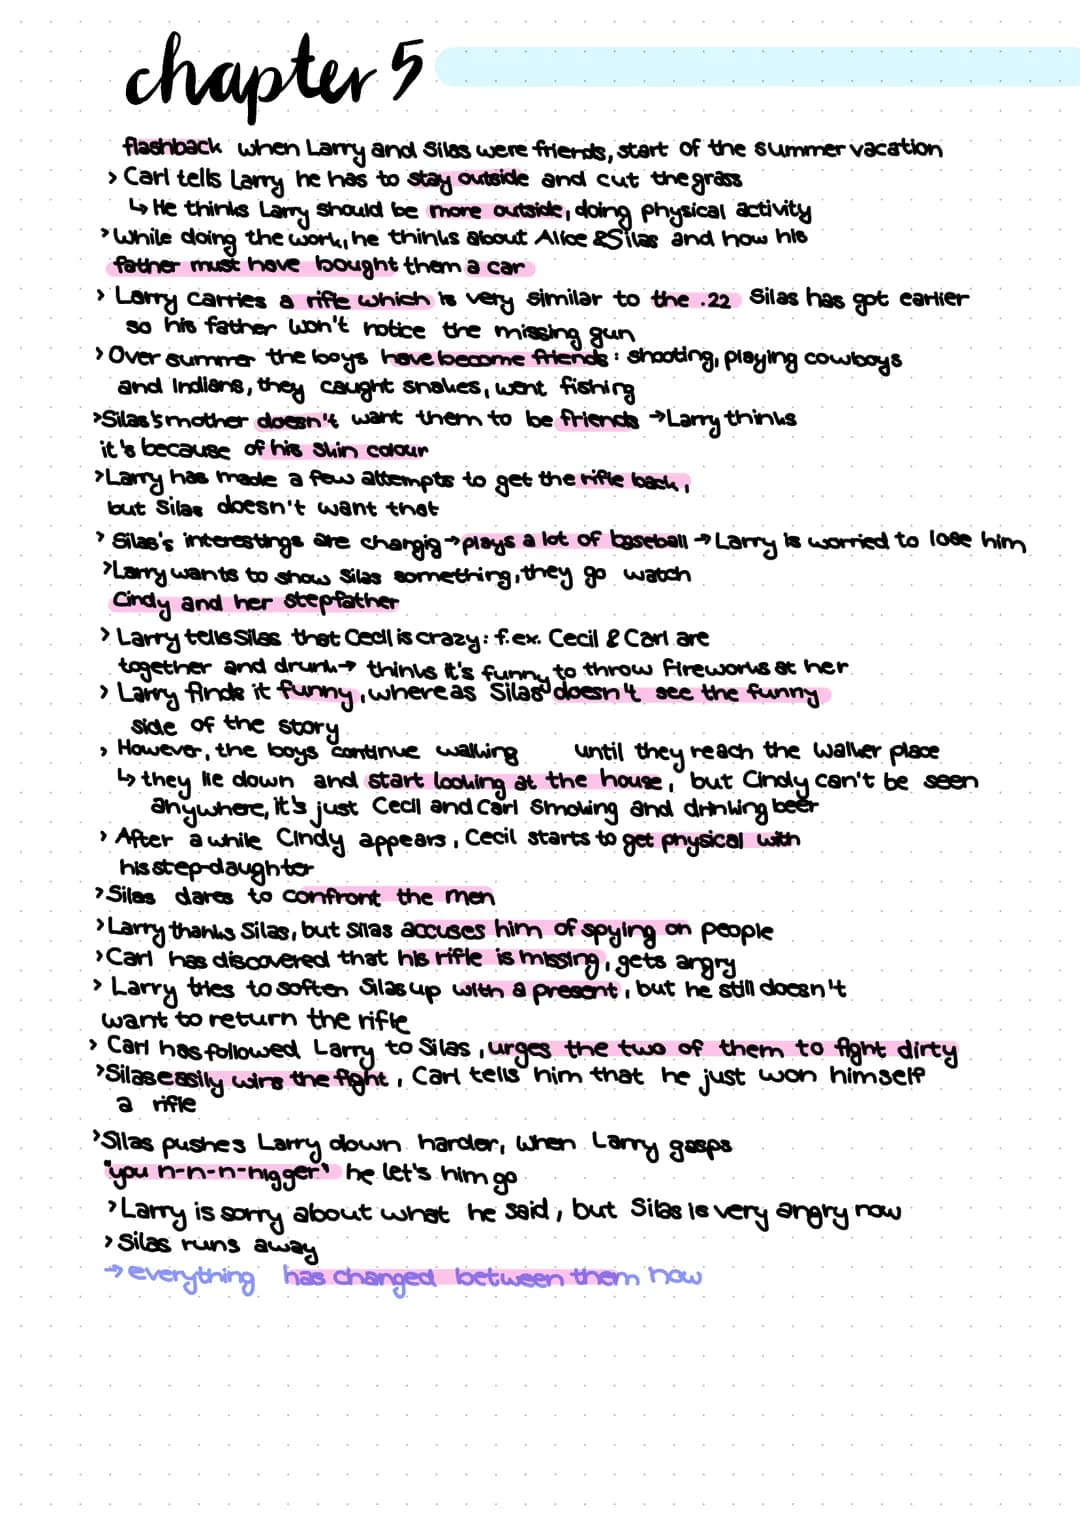 chapter 5
flashback when Larry and Silas were friends, start of the summer vacation
> Carl tells Larry he has to stay outside and cut the grass
↳ He thinks Larry should be more outside, doing physical activity
> While doing the work, he thinks about Alice & Silas and how his
father must have bought them a car
> Larry carries a rifle which is very similar to the .22 Silas has got earlier
so his father won't notice the missing gun
> Over summer the boys have become friends: shooting, playing cowboys
and Indians, they caught snakes, went fishing
> Silas's mother doesn't want them to be friends → Larry thinks
it's because of his skin colour
> Larry has made a few attempts to get the rifle back,
but Silas doesn't want that
> Silas's interestings are changig → plays a lot of baseball → Larry is worried to lose him
> Larry wants to show Silas something, they go watch
Cindy and her stepfather
> Larry tells Silas that Cecil is crazy: f.ex. Cecil & Carl are
together and drunk → thinks it's funny to throw fireworks at her
> Larry finds it funny, whereas Silas doesn't see the funny
side of the story
> However, the boys continue walking until they reach the Walker place
↳ they lie down and start looking at the house, but Cindy can't be seen
anywhere, it's just Cecil and Carl smoking and drinking beer
> After a while Cindy appears, Cecil starts to get physical with
his step-daughter
> Silas dares to confront the men
> Larry thanks Silas, but Silas accuses him of spying on people
> Carl has discovered that his rifle is missing, gets angry
> Larry tries to soften Silas up with a present, but he still doesn't
want to return the rifle
> Carl has followed Larry to Silas, urges the two of them to fight dirty
> Silas easily wins the fight, Carl tells him that he just won himself
a rifle
> Silas pushes Larry down harder, when Larry gasps
"you n-n-n-nigger" he let's him go
> Larry is sorry about what he said, but Silas is very angry now
> Silas runs away
→ everything has changed between them now